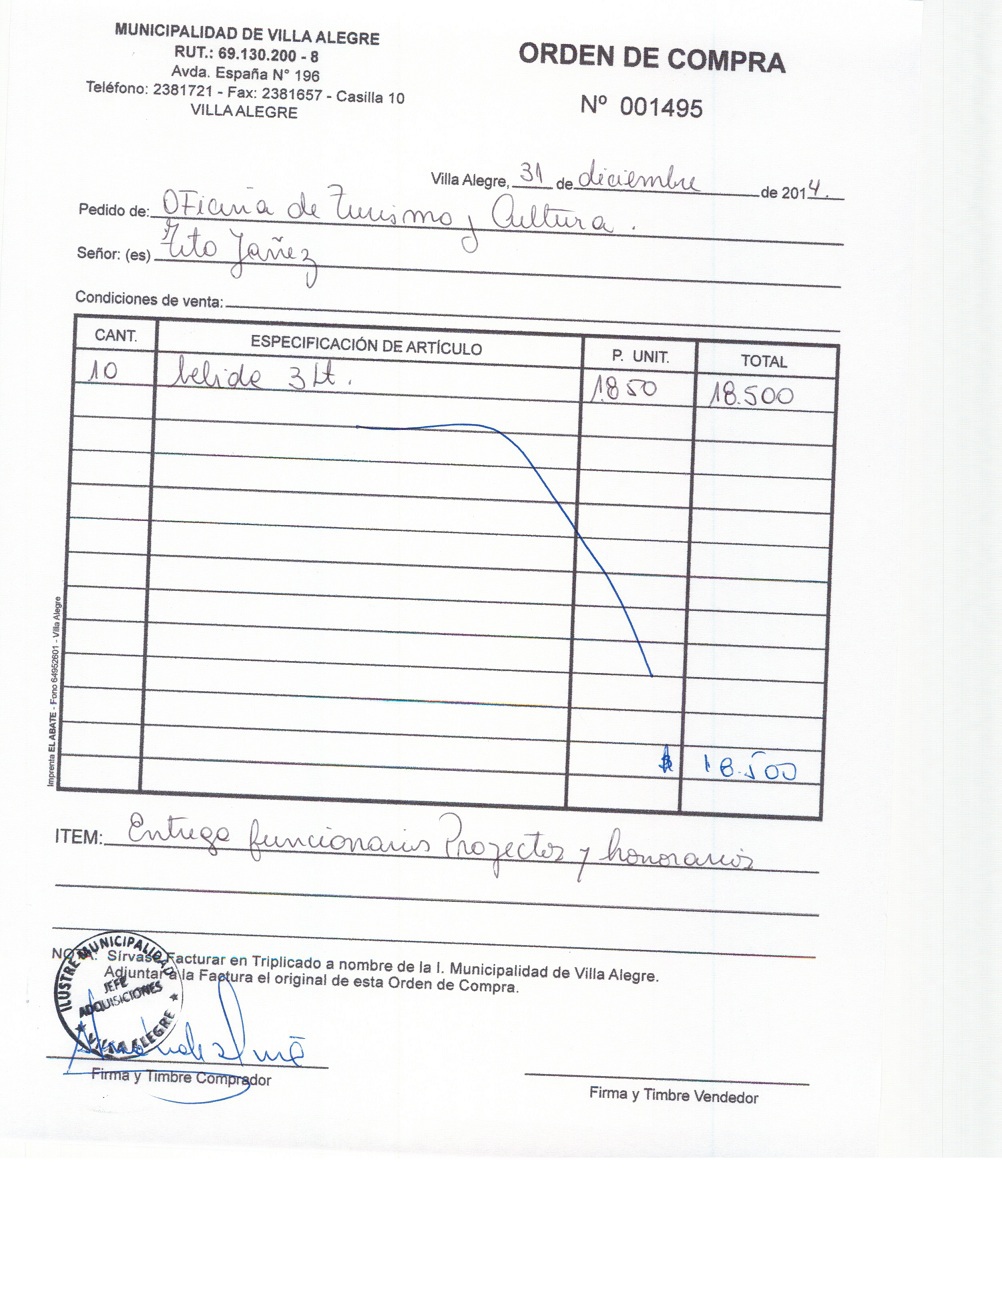 MUNICIPALIDAD DE VILLA ALEGRE
RUT.: 69.130.200 - 8
Avda. España N° 196
Teléfono: 2381721 - Fax: 2381657 - Casilla 10
VILLA ALEGRE
ORDEN DE COMPRA
Nº 001495
Villa Alegre, 31 de diciembre de 2014.
Pedido de: Oficina de Turismo y Cultura.
Señor: (es) Tito Yañez
Condiciones de venta:
CANT. ESPECIFICACIÓN DE ARTÍCULO P. UNIT. TOTAL
10 bebida 3 Lt. 1.850 18.500
$ 18.500
Imprenta EL ABATE - Fono 64952601 - Villa Alegre
ITEM: Entrega funcionarios Proyectos y honorarios
NOTA: Sírvase Facturar en Triplicado a nombre de la I. Municipalidad de Villa Alegre.
Adjuntar a la Factura el original de esta Orden de Compra.
ILUSTRE MUNICIPALIDAD
JEFE
ADQUISICIONES
★ VILLA ALEGRE ★
Firma y Timbre Comprador
Firma y Timbre Vendedor